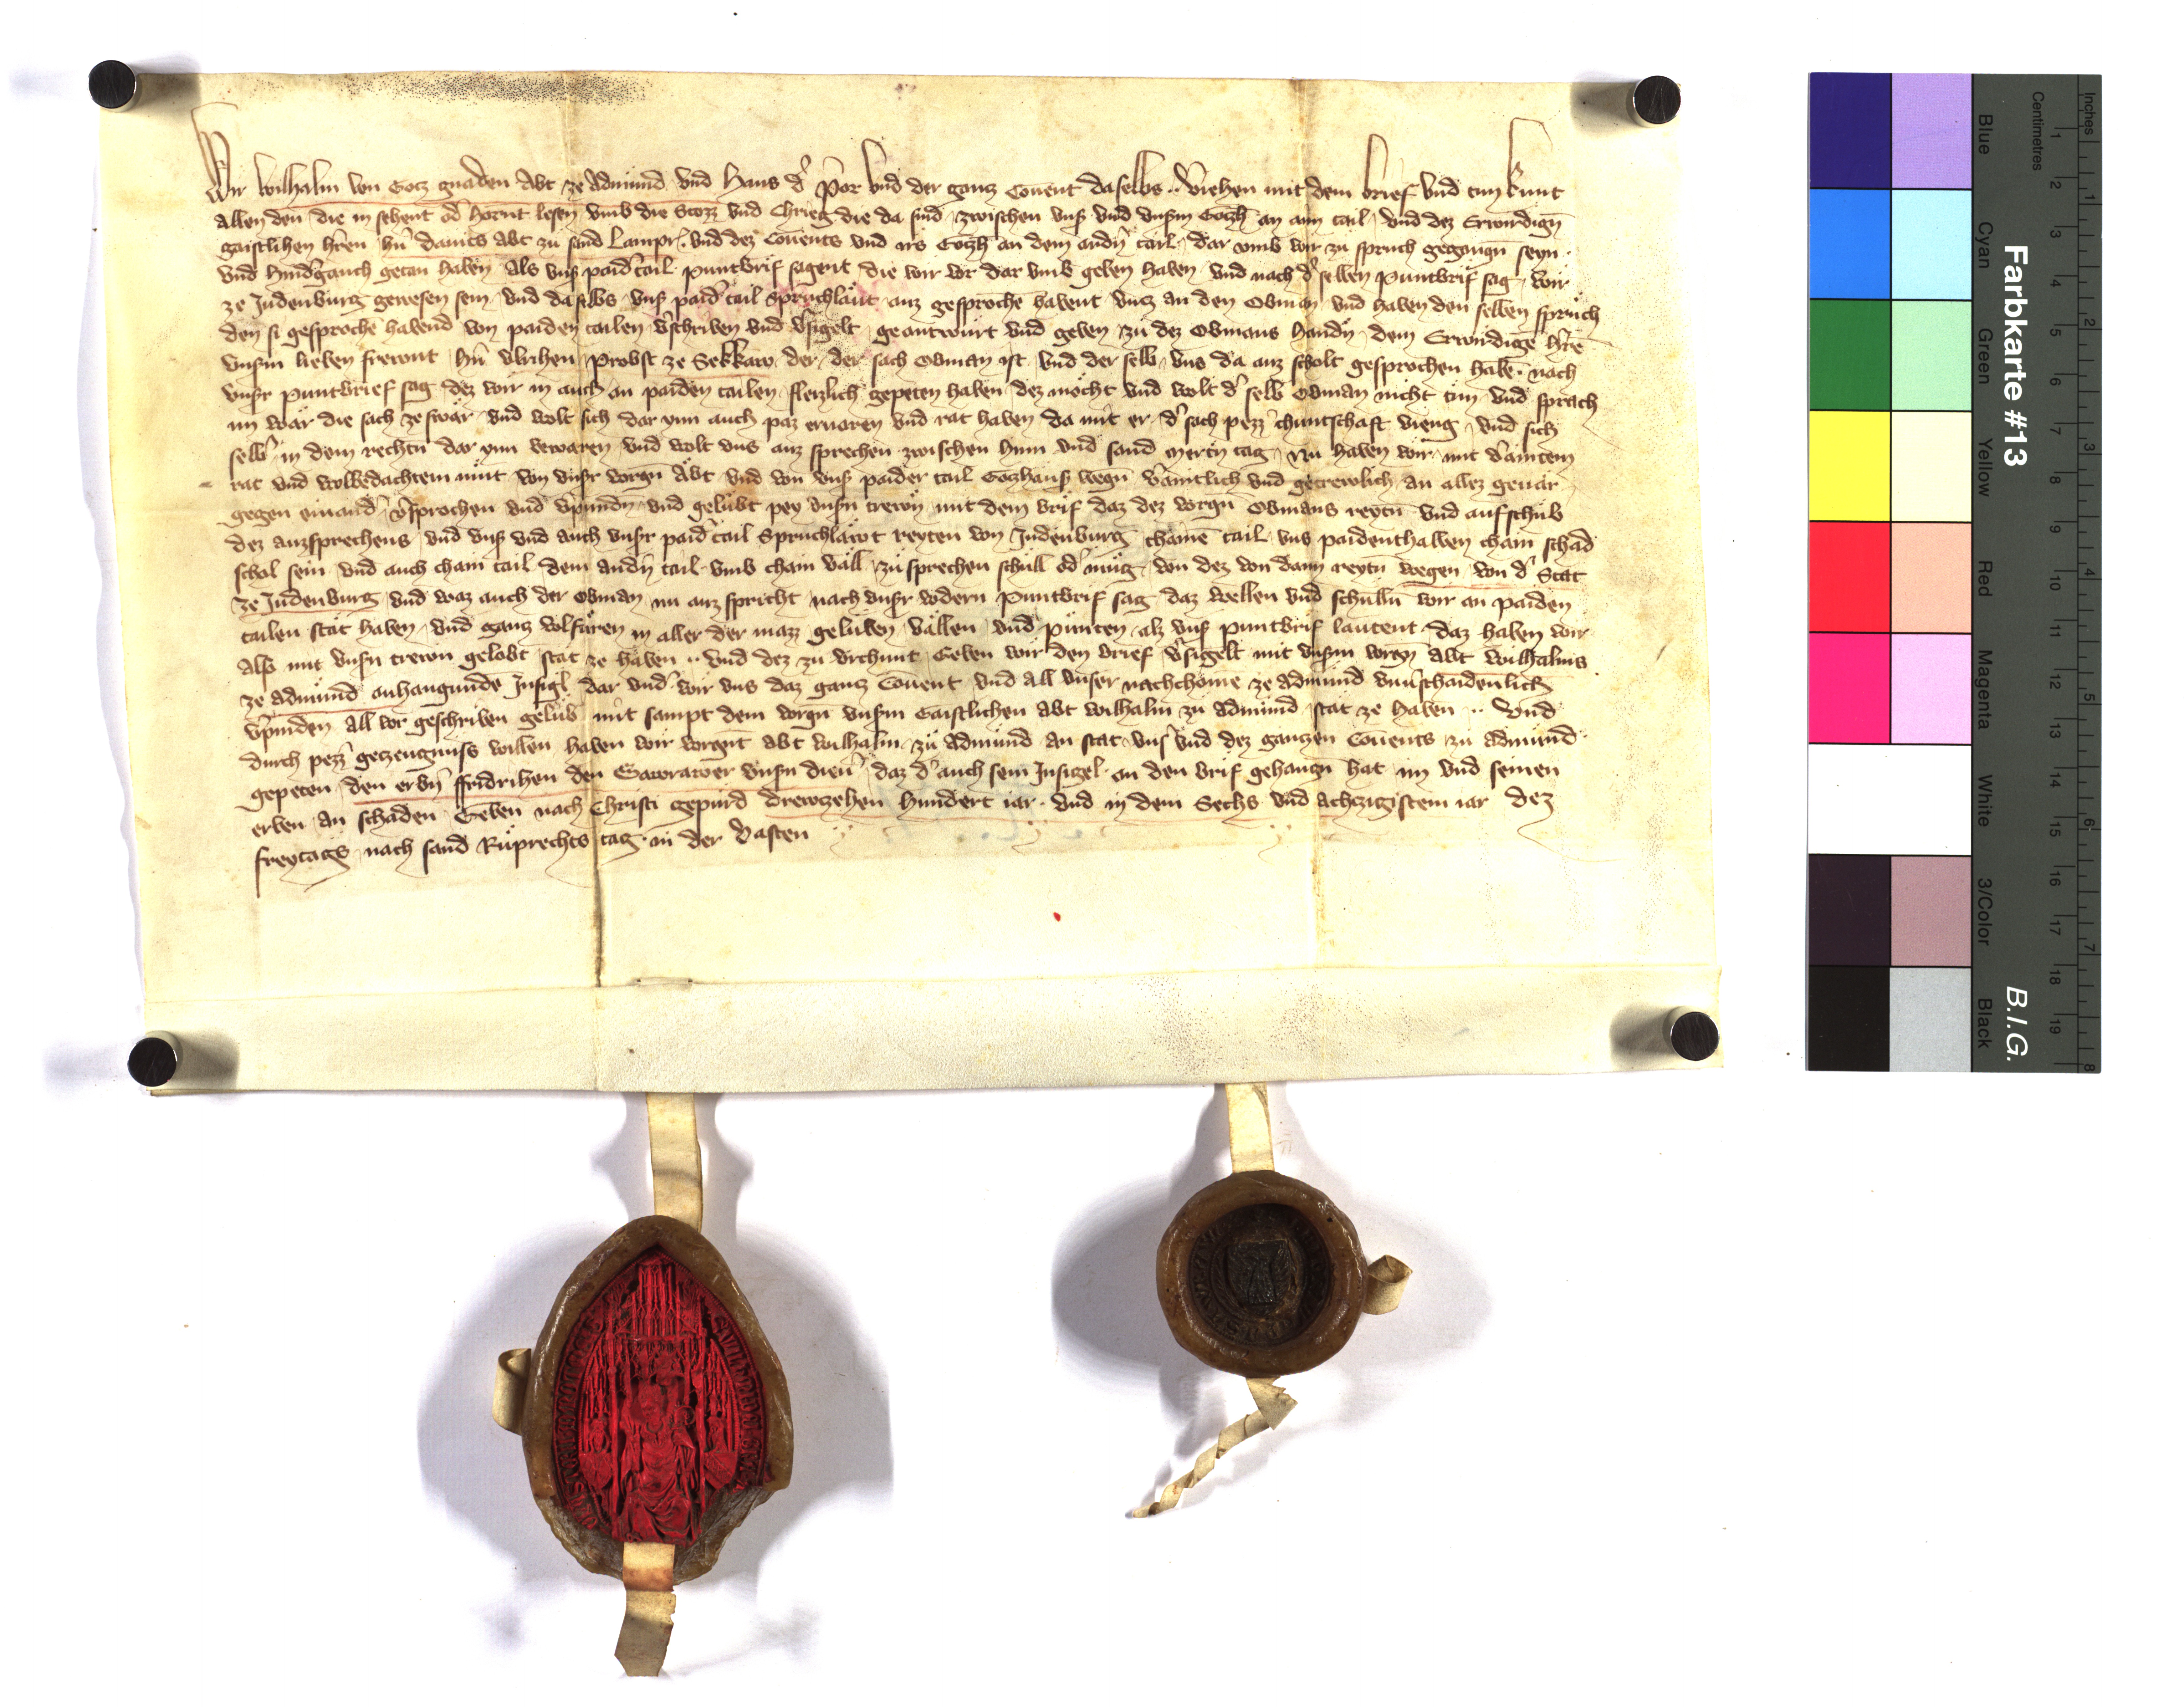 Wir Wilhalm von Gotz gnaden Abt ze Admund vnd Hans d' Prior vnd der gantz Couent daselbs .. v'iehen mit dem brief vnd tuͤn kunt
allen den die in sehent od' hornt lesen vmb die Stozz vnd Chrieg die da sind zwischen vns' vnd vnsm Gotzh' an aim tail vnd dez Erwirdign̄
gaistlihen h'ren h'n damits Abt zu sand Lampr'. vnd dez Couents vnd irs Gotzh' an dem andn' tail dar vmb wir zu spruch gegangn̄ seyn .
vnd hind'gankch getan haben als vns' paid' tail puntbrif sagent die wir vor dar vmb geben haben vnd nach d' selben puntbrif sag wir
ze Judenburg gewesen sein vnd daselbs vns' paid' tail Spruchlaͤut anz gesproche habent vncz an den Obman vnd haben den selben spruch
den si gesproche habend von paiden tailen v'schriben vnd v'sigelt geantwurt vnd geben zu dez Obmans handn̄ dem Erwirdigē h'rē
vnsm lieben frewnt h'n Vlrihen Probst ze Sekkaw der der sach Obman ist vnd der selb vns da anz scholt gesprochen habē . nach
vnsr puntbrief sag dez wir in auch an paiden tailen fleizlich gepeten haben dez mocht vnd wolt d' selb Obman nicht tun vnd sprach
im waͤr die sach ze swar vnd wolt sich dar vnn auch paz eruaren vnd rat haben da mit er d' sach pezz' chuntschaft vieng vnd sich
selb' in dem rechtn̄ dar vnn bewaren vnd wolt vns anz sprechen zwischen hinn vnd sand Mertn̄ tag Nu haben wir mit v'aintem
rat vnd wolbedachtem muͤt von vnsr vorgn̄ Abt vnd von vns' paider tail Gotzhaus' wegn̄ v'aintlich vnd getrewlich an allez geuaͤr
gegen einand' v'sprochen vnd v'pundn̄ vnd gelubt pey vnsn̄ trewn̄ mit dem brif daz dez vorgn̄ Obmans reytn̄ vnd aufschub
dez anzsprechens vnd vns' vnd auch vnsr paid' tail Spruchlaͤwt reyten von Judenburg chainē tail vns paidenthalben chain schad
schol sein vnd auch chain tail dem andn' tail vmb chain vaͤll zusprechen schull od' mug von dez von dann reytn̄ wegen von d' Stat
ze Judenburg vnd waz auch der Obman nu anz spricht nach vnsr vodern Puntbrif sag daz wellen vnd schulln̄ wir an paiden
tailen staͤt haben vnd gantz volfuren in aller der mazz geluben vaͤllen vnd punten alz vns' puntbrif lautent daz haben wir
als' mit vnsn̄ trewn gelobt staͤt ze haben .. vnd dez zu vrchunt Geben wir den brief v'sigelt mit vnsm vorgn̄ abt Wilhalms
ze Admund anhangunde Insigl dar vnd' wir vns daz gantz Couent vnd all vnser nachchome ze Admund vnu'schaidenlich
v'pinden all vor geschriben gelub mit sampt dem vorgn̄ vnsm Gaistlichen abt Wilhalm zu Admund staͤt ze haben .. Vnd
durch pezz' getzeugnuss willen haben wir vorgnt abt Wilhalm zu Admund an stat vns' vnd dez gantzen Couents zu Admund
gepeten den erbn̄ ffridrihen den Gaworawer vnsn̄ dien' daz d' auch sein Insigel an den brif gehangn̄ hat im vnd seinen
erben an schaden Geben nach Christi gepurd drewtzehen hundert iar . vnd in dem Sechs vnd achtzigistem iar dez
freytags nach sand Ruͤprechts tag in der Vasten
Farbkarte #13
B.I.G.
Inches
Centimetres
1 2 3 4 5 6 7 8 9 10 11 12 13 14 15 16 17 18 19
1 2 3 4 5 6 7 8
Blue
Cyan
Green
Yellow
Red
Magenta
White
3/Color
Black